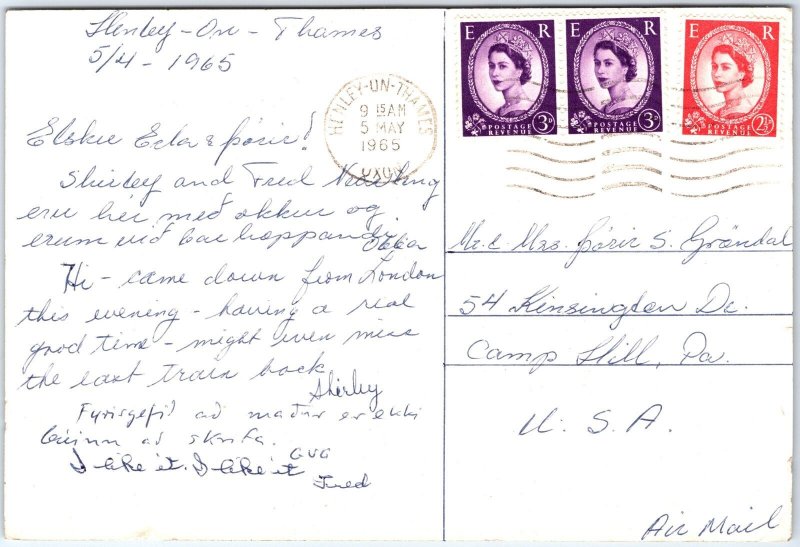 Henley-On-Thames
5/4-1965
Elsku Edda & Þórir!
Shirley and Fred
eru hér með okkur og
erum við bar hoppandi
Hi - came down from London
this evening - having a real
good time - might even miss
the last train back
Shirley
Fyrirgefið að maður er ekki
búinn að skrifa.
GVG
I like it. I like it
Fred
E R
POSTAGE
REVENUE
3D
E R
POSTAGE
REVENUE
3D
E R
POSTAGE
REVENUE
2½D
HENLEY-ON-THAMES
9 15AM
5 MAY
1965
OXON
Mr. & Mrs. Þórir S. Gröndal
54 Kinsington Dr.
Camp Hill, Pa.
U. S. A.
Air Mail